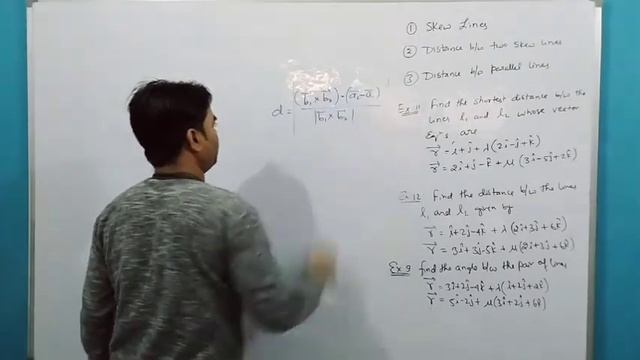 ① Skew Lines
② Distance b/w two skew lines
③ Distance b/w parallel lines
d = | (b₁ × b₂)·(a₂ - a₁) / |b₁ × b₂| |
Ex 11 Find the shortest distance b/w the
lines l₁ and l₂ whose vector
Eqⁿs are
r⃗ = î + ĵ + λ(2î - ĵ + k̂)
r⃗ = 2î + ĵ - k̂ + μ(3î - 5ĵ + 2k̂)
Ex 12 Find the distance b/w the lines
l₁ and l₂ given by
r⃗ = î + 2ĵ - 4k̂ + λ(2î + 3ĵ + 6k̂)
r⃗ = 3î + 3ĵ - 5k̂ + μ(2î + 3ĵ + 6k̂)
Ex 9 find the angle b/w the pair of lines
r⃗ = 3î + 2ĵ - 4k̂ + λ(î + 2ĵ + 2k̂)
r⃗ = 5î - 2ĵ + μ(3î + 2ĵ + 6k̂)